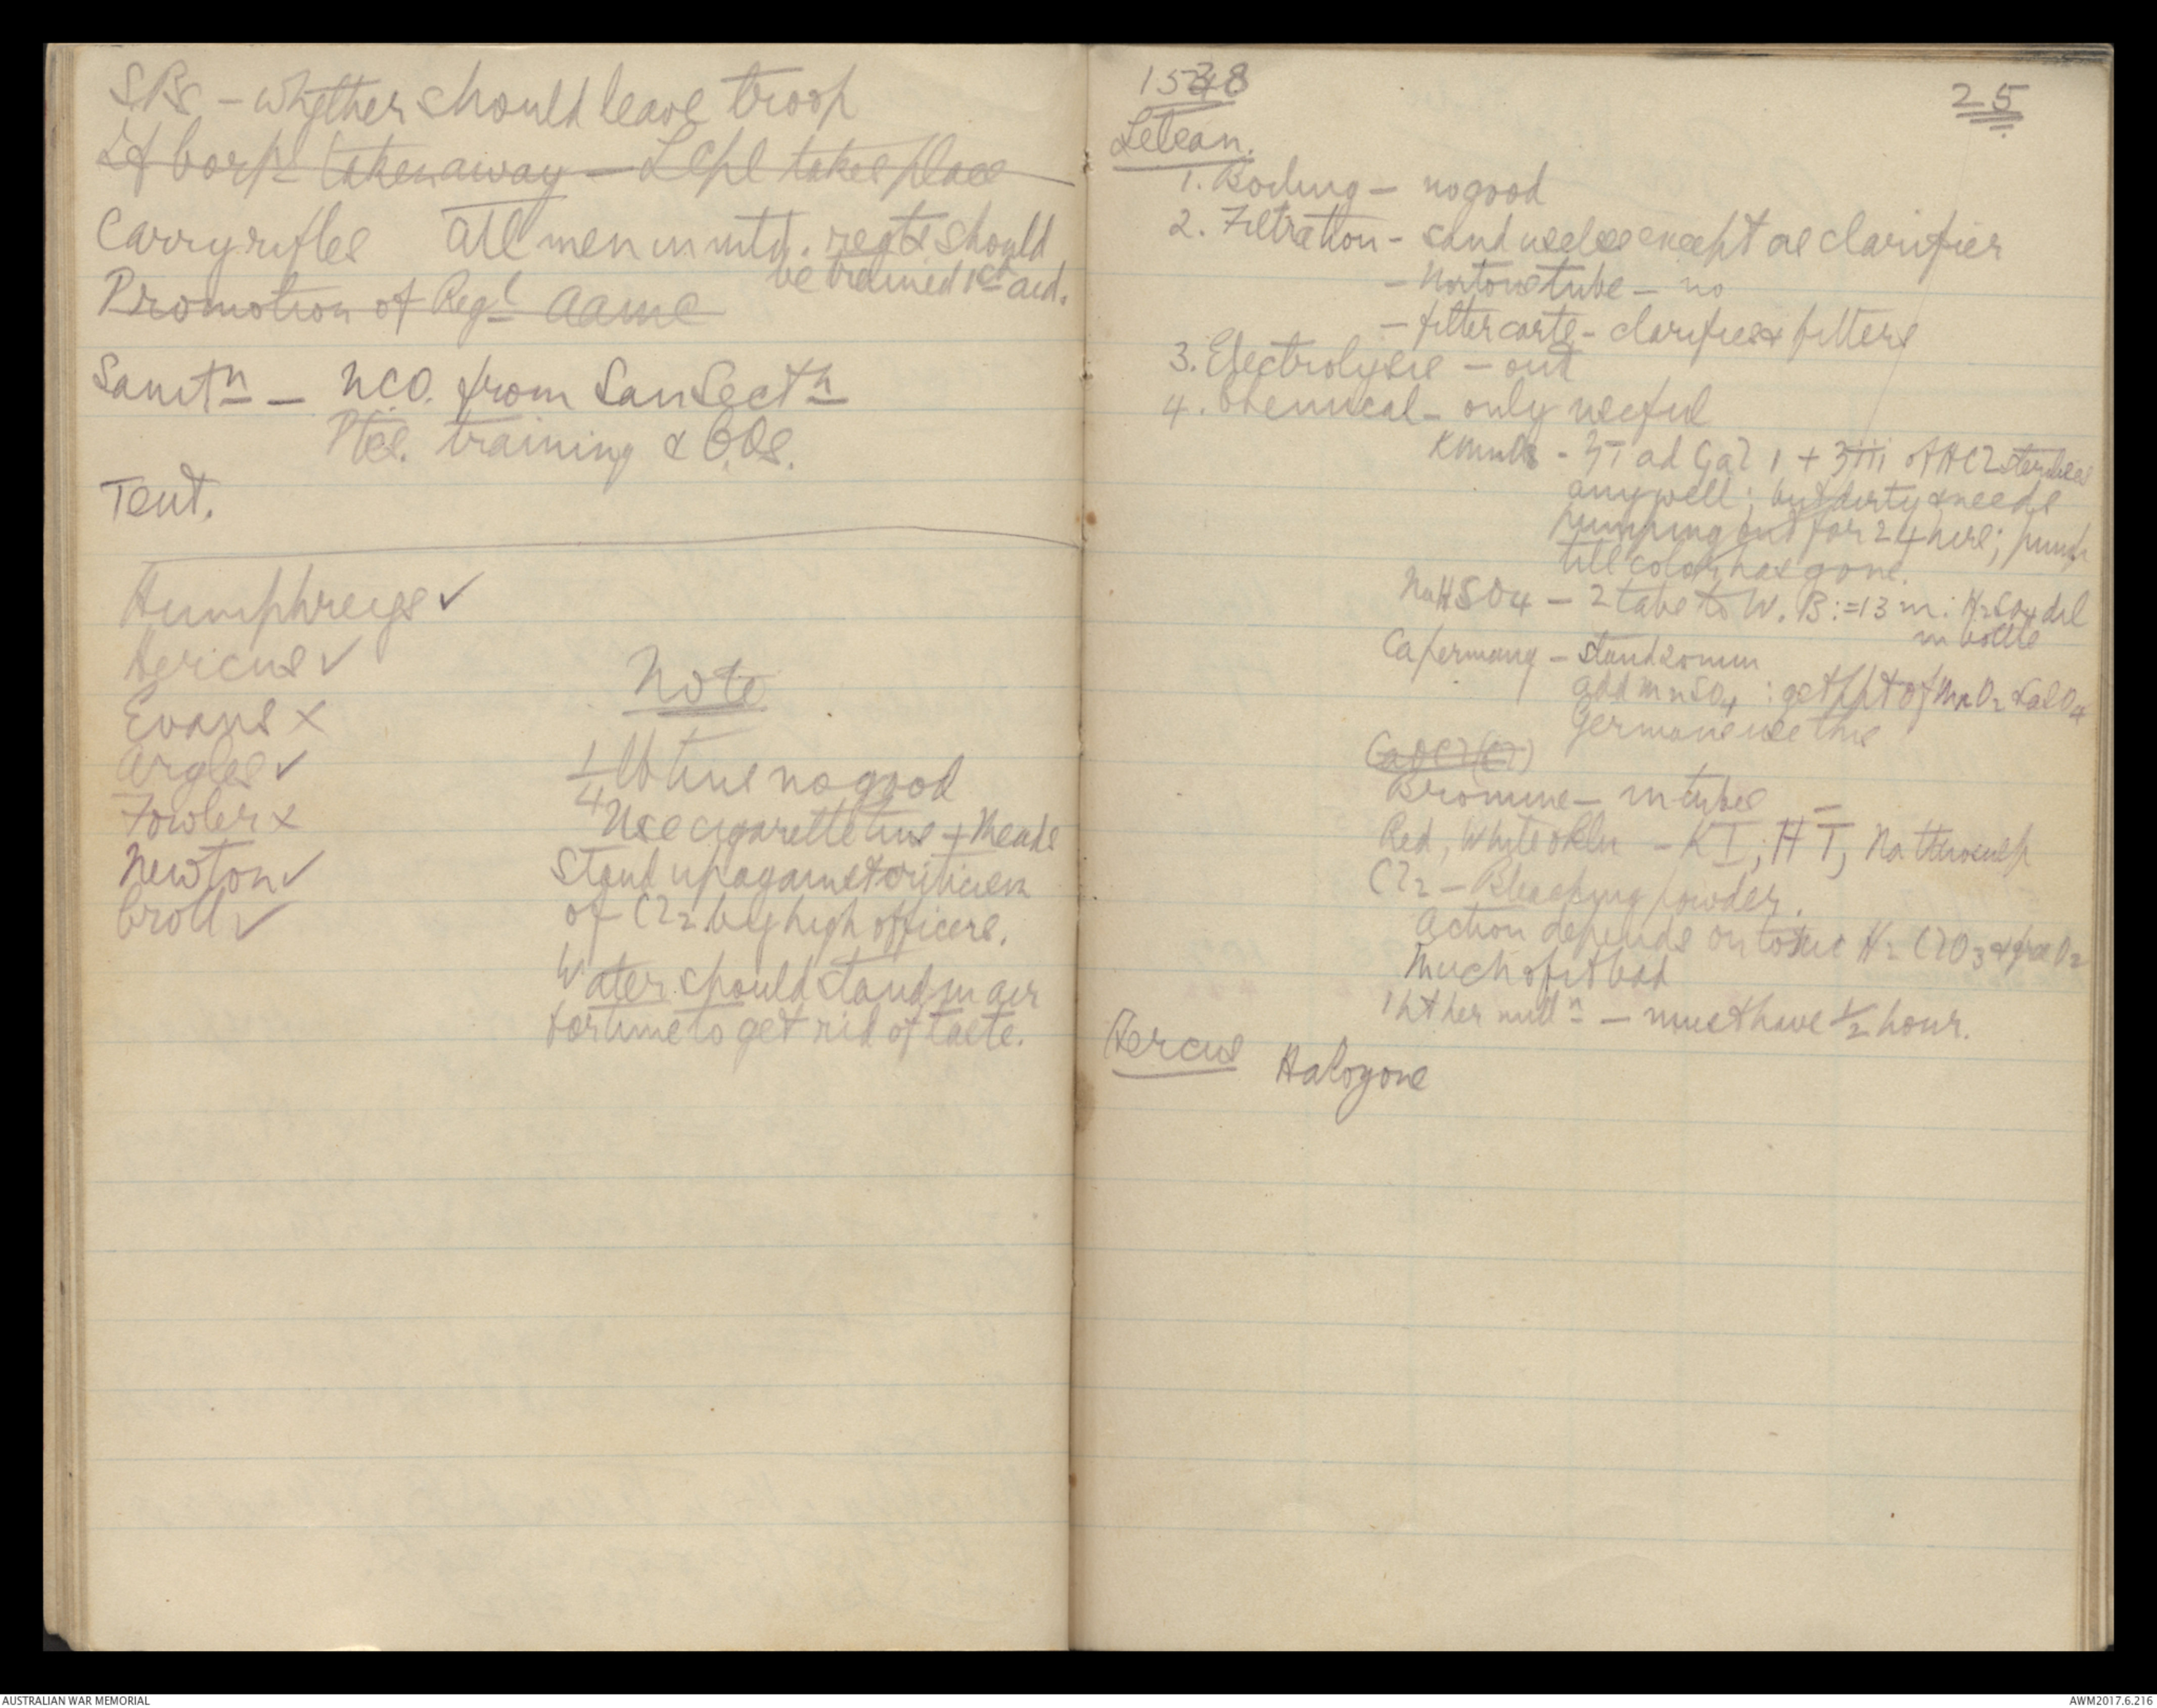 S.Bs - whether should leave troop
If Corpl taken away - L Cpl takes place
Carry rifles All men in mtd. regts should
be trained 1st aid.
Promotion of Regl AAMC
Sanitn - NCO. from San Sectn
Ptes. training & C.Os.
Tent.
Humphreys ✓
Hercus ✓
Evans x
Argles ✓
Fowler x
Newton ✓
Croll ✓
Note
1/4 lb tins no good
Use cigarette tins +
Stand up against criticism
of Cl2 by high officers.
Water should stand in air
for time to get rid of taste.
25
Lelean.
1. Boiling - no good
2. Filtration - sand useless except as clarifier
- Nortons tube - no
- filter carts - clarifies & filters
3. Electrolysis - out
4. Chemical - only useful
- ʒi ad Gal 1 + ʒiii of HCl sterilises
any well; but dirty & needs
pumping out for 24 hrs; pump
till color has gone.
NaHSO4 - 2 tabs to W.B. := 13 m: H2SO4 dil
in bottle
Ca permang - stand 20 min
add MnSO4 : get ppt of MnO2 & CaSO4
Germans use this
CaOCl(Cl)
Bromine - in tubes
Red, White & Blu - KI; HT, Na thiosulp
Cl2 - Bleaching powder.
Action depends on toxic H2ClO3 & free O2
Much of it bad
1 pt per milln - must have 1/2 hour.
Hercus Halogens
AUSTRALIAN WAR MEMORIAL
AWM2017.6.216